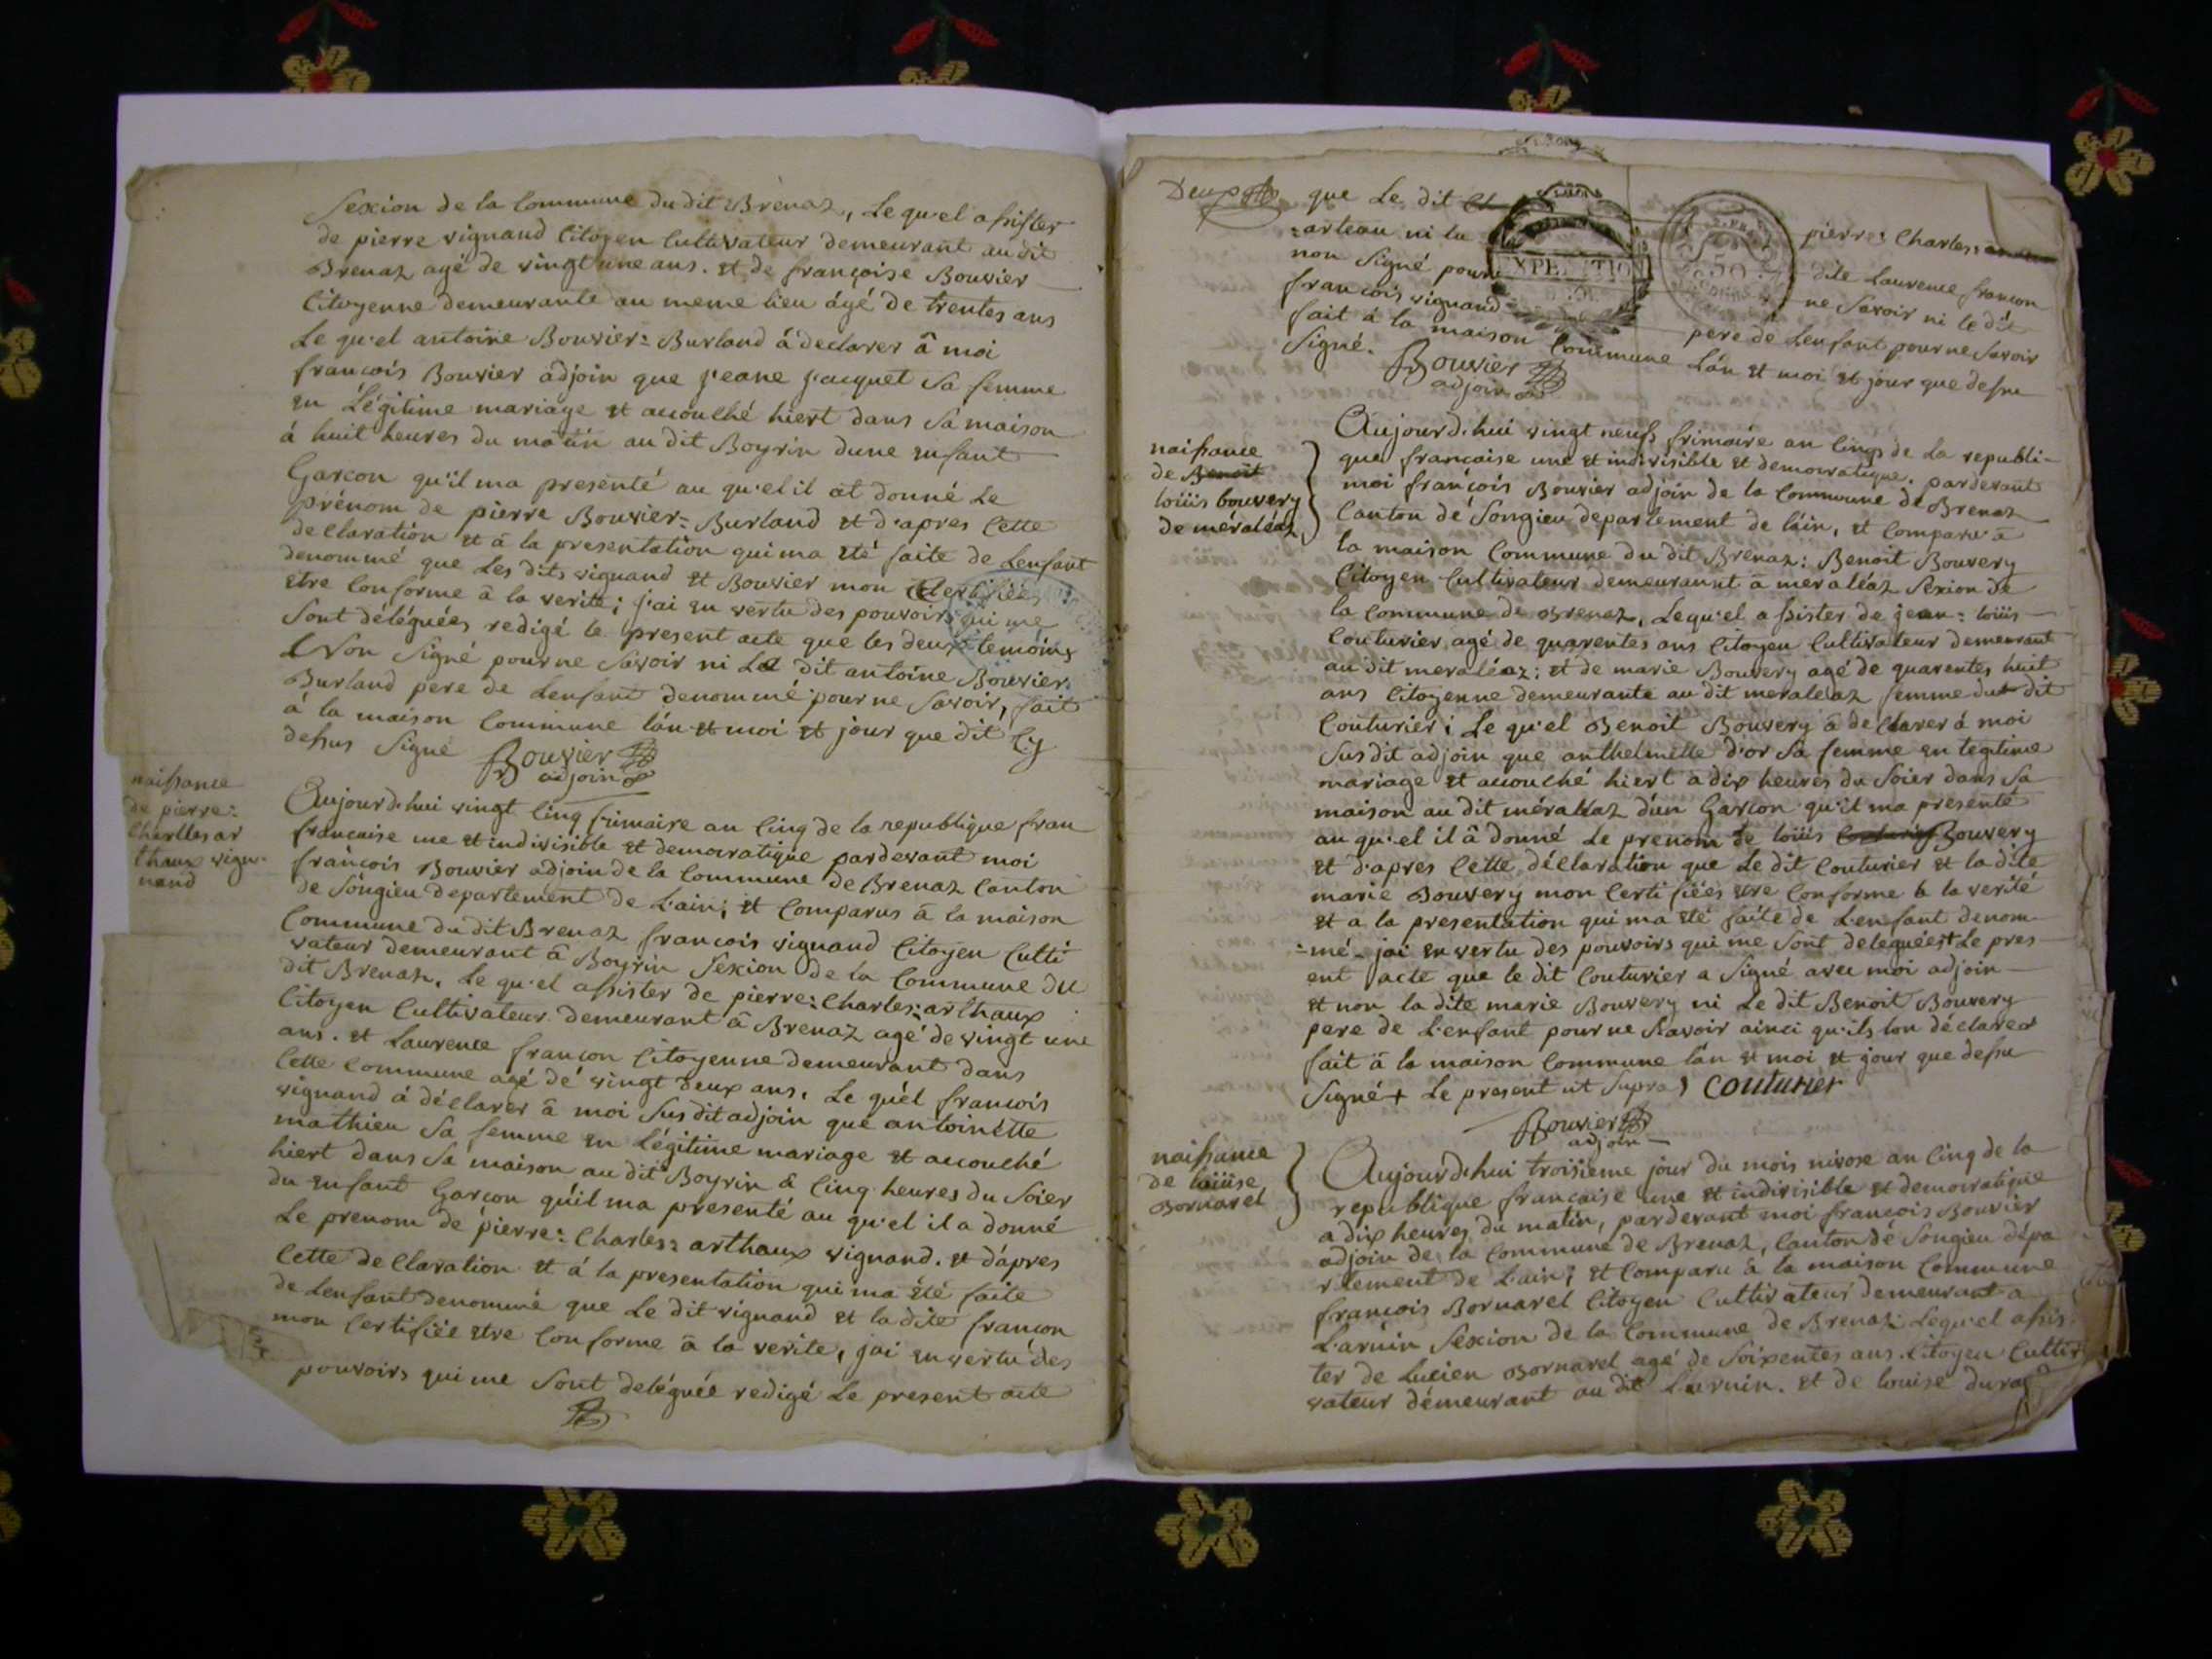 Sexion de la Commune du dit Brénaz, Le qu'el assister
de pierre vignand Citoyen Cultivateur demeurant au dit
Brenaz agé de vingt une ans. et de françoise Bouvier
Citoyenne demeurante au meme lieu ágé de trentes ans
Le qu'el antoine Bouvier= Burland á declarer â moi
francóis Bouvier âdjoin que jeane jacquet Sa femme
en Légitime mariage et accouché hiert dans Sa maison
á huit heures du matin au dit Boyrin dune enfant
Garcon qu'il ma presenté au qu'el il at donné Le
prénom de pierre Bouvier= Burland et d'apres Cette
declaration et â la presentation qui ma été faite de Lenfant
denommé que Les dits vignand et Bouvier mon Certifiées
etre Conforme â la verite; j'ai en vertu des pouvoirs qui me
Sont déléguées redigé le present acte que les deux temoins
Non Signé pour ne Savoir ni Le dit antoine Bouvier=
Burland pere de Lenfant denommé pour ne Savoir, fait
á la maison Commune lán et moi et jour que dit Cy
dessus Signé Bouvier
adjoin
naissance
de pierre=
Charlles ar
thaux vign-
nand
Aujourd'hui vingt Cinq frimaire an Cinq de la republique fran
francaise une et indivisible et democratique pardevant moi
francois Bouvier adjoin de la Commune de Brenaz Canton
de Sóngieu departement de L'ain; et Comparus â la maison
Commune du dit Brenaz francois vignand Citoyen Culti
vateur demeurant â Boyrin Sexion de la Commune du
dit Brenaz. Le qu'el assister de pierre= Charles= arthaux
Citoyen Cultivateur demeurant â Brenaz agé de vingt une
ans. et Laurence françon Citoyenne demeurant dans
Cette Commune agé dé vingt deux ans. Le quél francois
vignand á déclarer â moi Sus dit adjoin que antoinette
mathieu Sa femme en Légitime mariage et accouché
hiert dans Sa maison au dit Boyrin â Cinq heures du Soier
du enfant Garcon qu'il ma presenté au qu'el il a donné
Le prenom de pierre= Charles= arthaux vignand. et d'apres
Cette declaration et á la presentation qui ma été faite
de Lenfant denommé que Le dit vignand et la dite françon
mon Certifiée etre Conforme â la verite, jai en vertu des
pouvoirs qui me Sont deléguée redigé Le present acte
Deux que Le dit pierre= Charles=
=arteau ni la dite Laurence françon
non Signé pour ne Savoir ni le dit
francois vignand pere de Lenfant pour ne Savoir
fait á la maison Commune Lán et moi et jour que dessu
Signé. Bouvier
adjoin
EXPEDITION
50
naissance
de Benoit
loüis bouvery
de méraléaz
Aujourd'hui vingt neufs frimaire an Cinq de la republi-
que francaise une et indivisible et democratique. pardevant
moi francois Bouvier adjoin de la Commune de Brenaz
Canton de Songieu departement de láin, et Comparu â
la maison Commune du dit Brenaz: Benoit Bouvery
Citoyen Cultivateur demeurannt â meraléaz Sexion de
la Commune de Brenaz, Lequ'el assister de jean= loüis
Couturier agé de quarentes ans Citoyen Cultivateur demeurant
au dit meraléaz; et de marie Bouvery agé de quarentes huit
ans Citoyenne demeurante au dit meraleaz femme du dit
Couturier; Le qu'el Benoit Bouvery â declarer á moi
Susdit adjoin que anthelmette d'or Sa femme en legitime
mariage et accouché hiert a dix heures du Soier dans Sa
maison au dit méraléaz d'un Garcon qu'il ma presenté
au qu'el il â donné Le prenom de loüis Couturier Bouvery
et d'apres Cette déclaration que Le dit Couturier et la dite
marie Bouvery mon Certifiées etre Conforme â la verité
et a la presentation qui ma été faite de L'enfant denom-
=mé- jai en vertu des pouvoirs qui me Sont deleguées+ Le pres-
ent acte que le dit Couturier a Signé avec moi adjoin
et non la dite marie Bouvery ni Le dit Benoit Bouvery
pere de L'enfant pour ne Savoir ainci qu'ils lon déclarer
fait â la maison Commune lán et moi et jour que dessu
Signé + Le present ut Supra) Couturier
Bouvier
adjoin
naissance
de loüise
Bornarel
Aujourd'hui troisieme jour du mois nivose an Cinq de la
republique francaise une et indivisible et democratique
a dix heures du matin, pardevant moi francois Bouvier
adjoin de la Commune de Brenaz, Canton dé Songieu dépa
rtement de L'ain; et Comparu â la maison Commune
francois Bornarel Citoyen Cultivateur demeurant a
L'arnin Sexion de la Commune de Brenaz: Lequ'el assis-
ter de Lucien Bornarel agé de Soixentes ans. Citoyen Culti
vateur démeurant au dit Larnin. et de louise